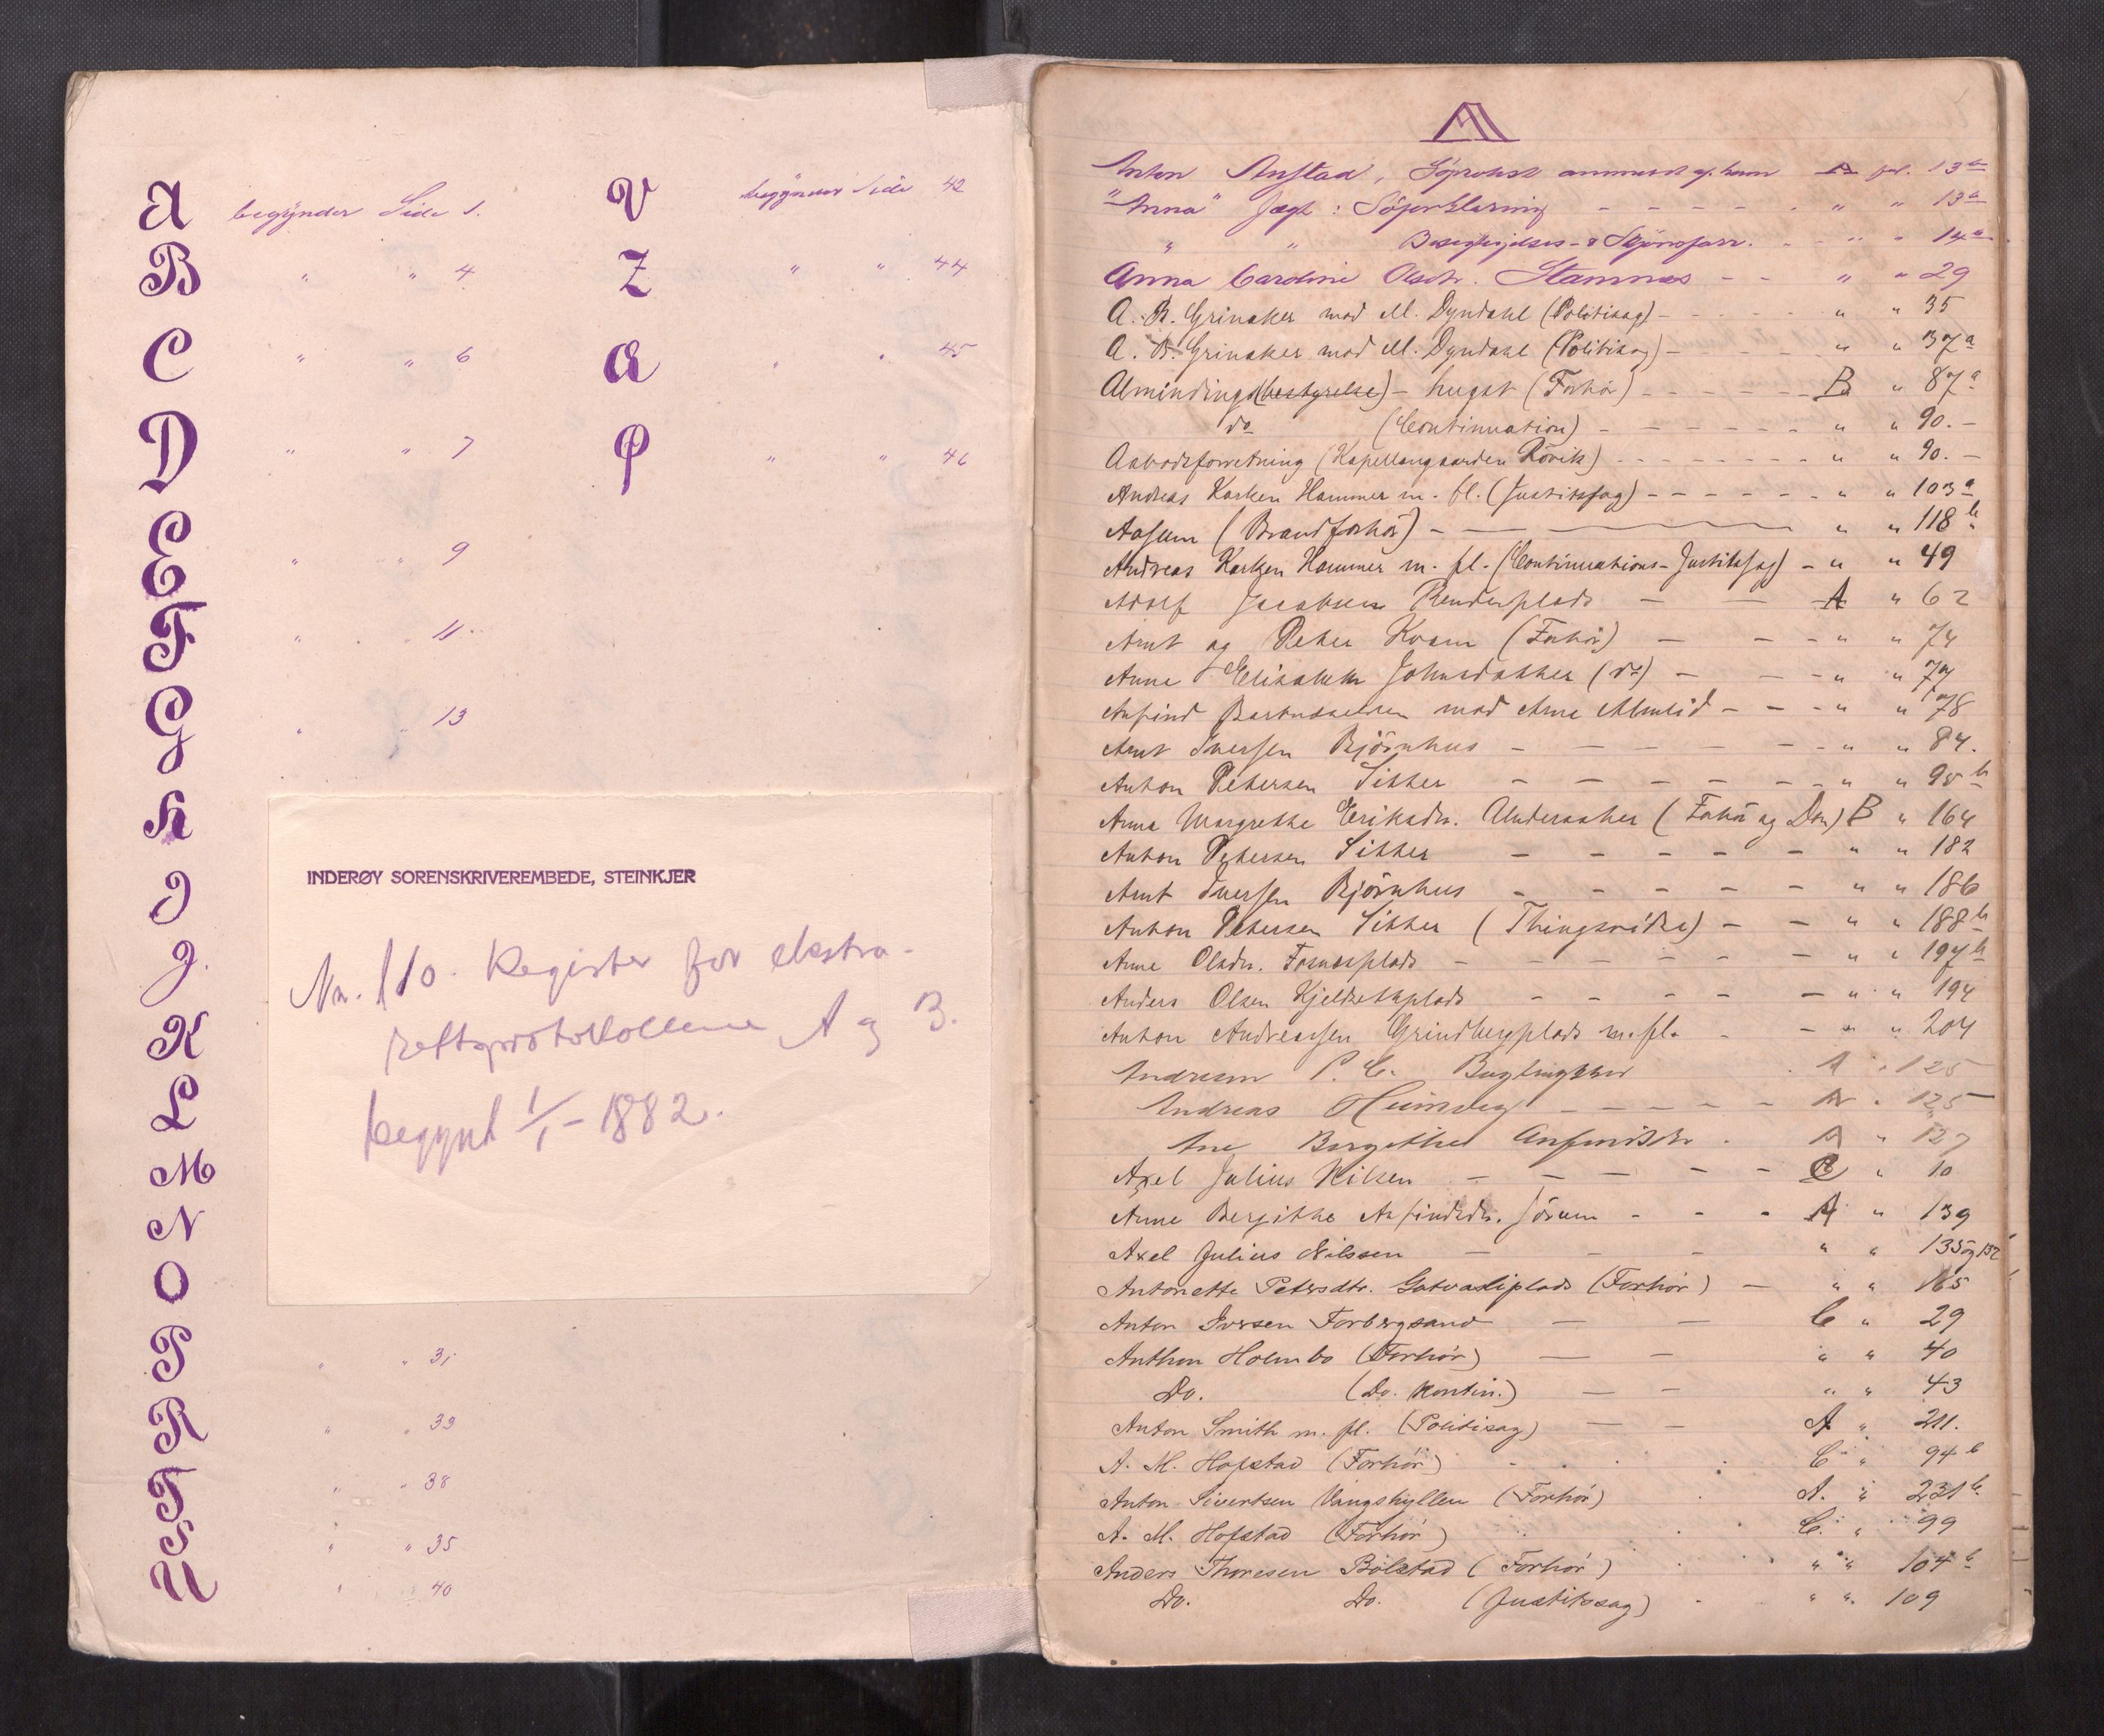 A begynder Side 1.
B " " 4
C " " 6
D " " 7
E " " 9
F " " 11
G " " 13
H
I
J.
K
L
M
N
O
P " " 31
R " " 33
T " " 38
S " " 35
U " " 40
V begynder Side 42
Z " " 44
Q " " 45
Φ " " 46
INDERØY SORENSKRIVEREMBEDE, STEINKJER
Nr. 110. Register for ekstra-
rettsprotokollene A og B.
begynt 1/1 - 1882.
A
Anton Anstad, Söprotest af ham A fol. 13b
"Anna" Jagt: Söforklaring - - - - - " " 13a
" " Besigtigelses- & Skjönsforr. - " " 14a
Anna Cardine Olsdtr. Stamnes - - " " 29
A. B. Grinaker mod M. Dyndahl (Politisag) - - - " " 35
A. B. Grinaker mod M. Dyndahl (Politisag) - - - " " 37a
Almindings(bestyrelse) - hugst (Forhör) - - - - B " 87a
do (Continuation) - - - - - " " 90. -
Aabodsforretning (Kapellangaarden Rövik) - - - - " " 90. -
Andreas Karlsen Hammer m. fl. (Justitssag) - - - - " " 103a
Aasum (Brandforhör) - — " " 118b
Andreas Karlsen Hammer m. fl. (Continuations-Justitssag) - " " 49
Adolf Jacobsen Renderplads — — A " 62
Arnt og Peter Kvam (Forhör) — - - " " 74
Anne Elisabeth Johnsdatter (do) - - - " " 77
Anfind Bardosen mod Arne Almlid - - - " " 78
Arnt Iversen Björnhus - - - - - " " 84.
Anton Petersen Sikker - - - - - " " 95b
Anna Margrethe Eriksdtr. Underaaker (Forhör og Dom) B " 164
Anton Petersen Sikker - - - - - " " 182
Arnt Iversen Björnhus - - - - - " " 186
Anton Petersen Sikker (Thingsvidne) - - " " 188b
Anne Olsdtr. Fosnesplads - - - - - " " 197b
Anders Olsen Kjeldsetplads - - - - — " " 194
Anton Andreassen Grindbergplads m. fl. - - " " 204
Andresen P. C. A " 125
Andreas - - - - - A " 125
Ane Bergithe Anfinsdtr. A " 127
Axel Julius Nilsen - - - - - C " 10
Anne Bergithe Anfindsdtr. Jörum - - - A " 139
Axel Julius Nilssen - - - " " 135 og 152
Antonette Petersdtr. Gotvasliplads (Forhör) — " " 165
Anton Iversen Forbergsand — — C " 29
Anthon Holmbo (Forhör) — — " " 40
Do. (Do. kontin.) — — " " 43
Anton Smith m. fl. (Politisag) — — A " 211.
A. M. Hofstad (Forhör) C " 94b
Anton Sivertsen Vangshyllen (Forhör) A. " 231b
A. M. Hofstad (Forhör) C. " 99
Anders Thoresen Bölestad (Forhör) " " 104b
Do. Do. (Justitssag) " " 109